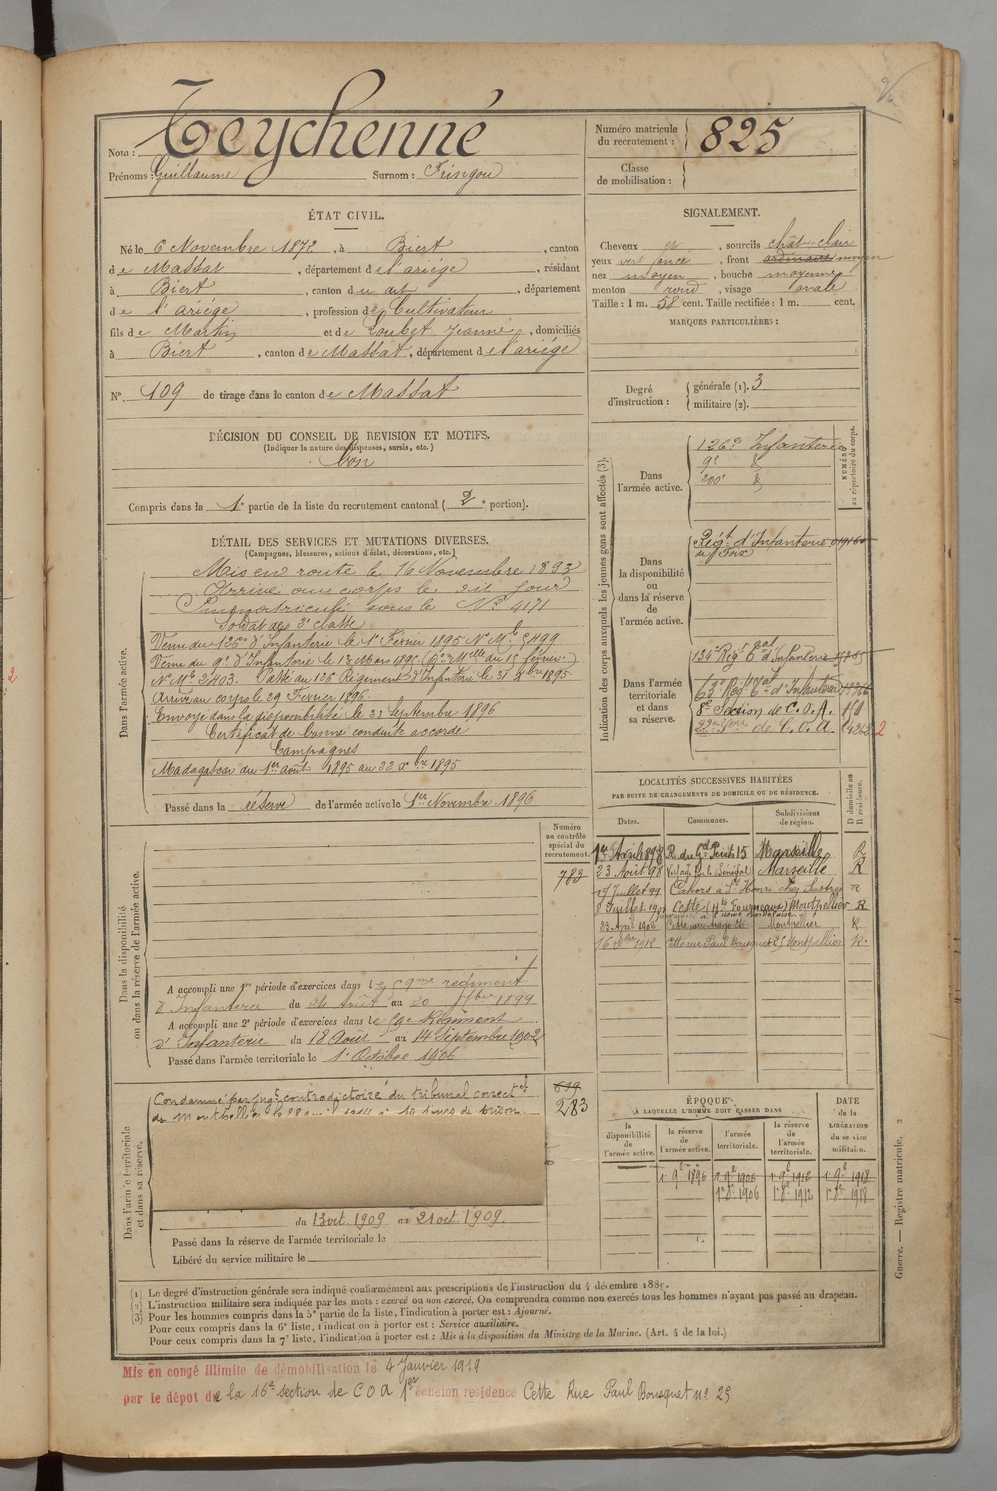 Nom : Teychenné
Prénoms : Guillaume Surnom : Fringou
Numéro matricule du recrutement : 825
Classe de mobilisation :
ÉTAT CIVIL.
Né le 6 Novembre 1872, à Biert, canton
de Massat, département de l'ariége, résidant
à Biert, canton du dit, département
de l'ariége, profession de Cultivateur
fils de Martin et de Loubet Jeanne, domiciliés
à Biert, canton de Massat, département de l'ariége
N°. 109 de tirage dans le canton de Massat
DÉCISION DU CONSEIL DE REVISION ET MOTIFS.
(Indiquer la nature des dispenses, sursis, etc.)
bon
Compris dans la 1e partie de la liste du recrutement cantonal ( 2e portion).
SIGNALEMENT.
Cheveux , sourcils chât-clair
yeux vert foncé, front ordinaire moyen
nez moyen, bouche moyenne
menton rond, visage ovale
Taille : 1 m. 58 cent. Taille rectifiée : 1 m. cent.
MARQUES PARTICULIÈRES :
Degré d'instruction :
générale (1). 3
militaire (2).
DÉTAIL DES SERVICES ET MUTATIONS DIVERSES.
(Campagnes, blessures, actions d'éclat, décorations, etc.)
Dans l'armée active.
Mis en route le 16 Novembre 1893
Arrivé au corps le dit jour
Immatriculé sous le No 4171
Soldat de 2e classe
Venu du 126e d'Infanterie le 1er Février 1895 No Mle 5499
Venu du 9e d'Infanterie le 13 Mars 1895
No Mle 2403. Passé au 126 Régiment d'Infanterie le 31 Xbre 1895
Arrivé au corps le 29 Février 1896
Envoyé dans la disponibilité le 23 Septembre 1896
Certificat de bonne conduite accordé
Campagnes
Madagascar du 1er août 1895 au 22 Xbre 1895
Passé dans la réserve de l'armée active le 1er Novembre 1896
Indication des corps auxquels les jeunes gens sont affectés (3).
NUMÉRO au répertoire du corps.
Dans l'armée active.
126e Infanterie
9e d
200e d
Dans la disponibilité ou dans la réserve de l'armée active.
Régt d'Infanterie
de Foix
Dans l'armée territoriale et dans sa réserve.
134e Régt Tal d'Infanterie
8e Section de C.O.A.
de C.O.A.
Dans la disponibilité ou dans la réserve de l'armée active.
Numéro au contrôle spécial du recrutement.
783
A accompli une 1re période d'exercices dans le 59me régiment
d'Infanterie du 24 Août au 20 7bre 1899
A accompli une 2e période d'exercices dans le 59e Régiment
d'Infanterie du 18 Août au 14 Septembre 1902
Passé dans l'armée territoriale le 1er Octobre 1906
LOCALITÉS SUCCESSIVES HABITÉES
PAR SUITE DE CHANGEMENTS DE DOMICILE OU DE RÉSIDENCE.
Dates. Communes. Subdivisions de région. D domicile ou R résidence.
1er Avril 1898 R. du Gd Puits 15 Marseille R
23 Août 98 Sénégal Marseille R
19 Juillet 99 Cahors R
8 Juillet 1901 Cette Montpellier R
23 Avril 1902 Cette Montpellier R
1912 Cette rue Paul Bousquet 25 Montpellier R.
Dans l'armée territoriale et dans sa réserve.
Condamné par jugt contradictoire du tribunal correctel
de Montpellier
283
du 13 oct. 1909 au 21 oct. 1909.
Passé dans la réserve de l'armée territoriale le
Libéré du service militaire le
ÉPOQUE
À LAQUELLE L'HOMME DOIT PASSER DANS
la disponibilité de l'armée active. la réserve de l'armée active. l'armée territoriale. la réserve de l'armée territoriale.
DATE de la LIBÉRATION du service militaire.
1er 9bre 1896 1er 9bre 1906 1er 9bre 1912 1er 9bre 1918
1er 8bre 1906 1er 8bre 1912 1er 8bre 1918
(1) Le degré d'instruction générale sera indiqué conformément aux prescriptions de l'instruction du 4 décembre 1889.
(2) L'instruction militaire sera indiquée par les mots : exercé ou non exercé. On comprendra comme non exercés tous les hommes n'ayant pas passé au drapeau.
(3) Pour les hommes compris dans la 5e partie de la liste, l'indication à porter est : Ajourné.
Pour ceux compris dans la 6e liste, l'indication à porter est : Service auxiliaire.
Pour ceux compris dans la 7e liste, l'indication à porter est : Mis à la disposition du Ministre de la Marine. (Art. 4 de la loi.)
Guerre. — Registre matricule. 2
Mis en congé illimité de démobilisation le 4 Janvier 1919
par le dépôt de la 16e section de COA 1er échelon résidence Cette Rue Paul Bousquet no 25